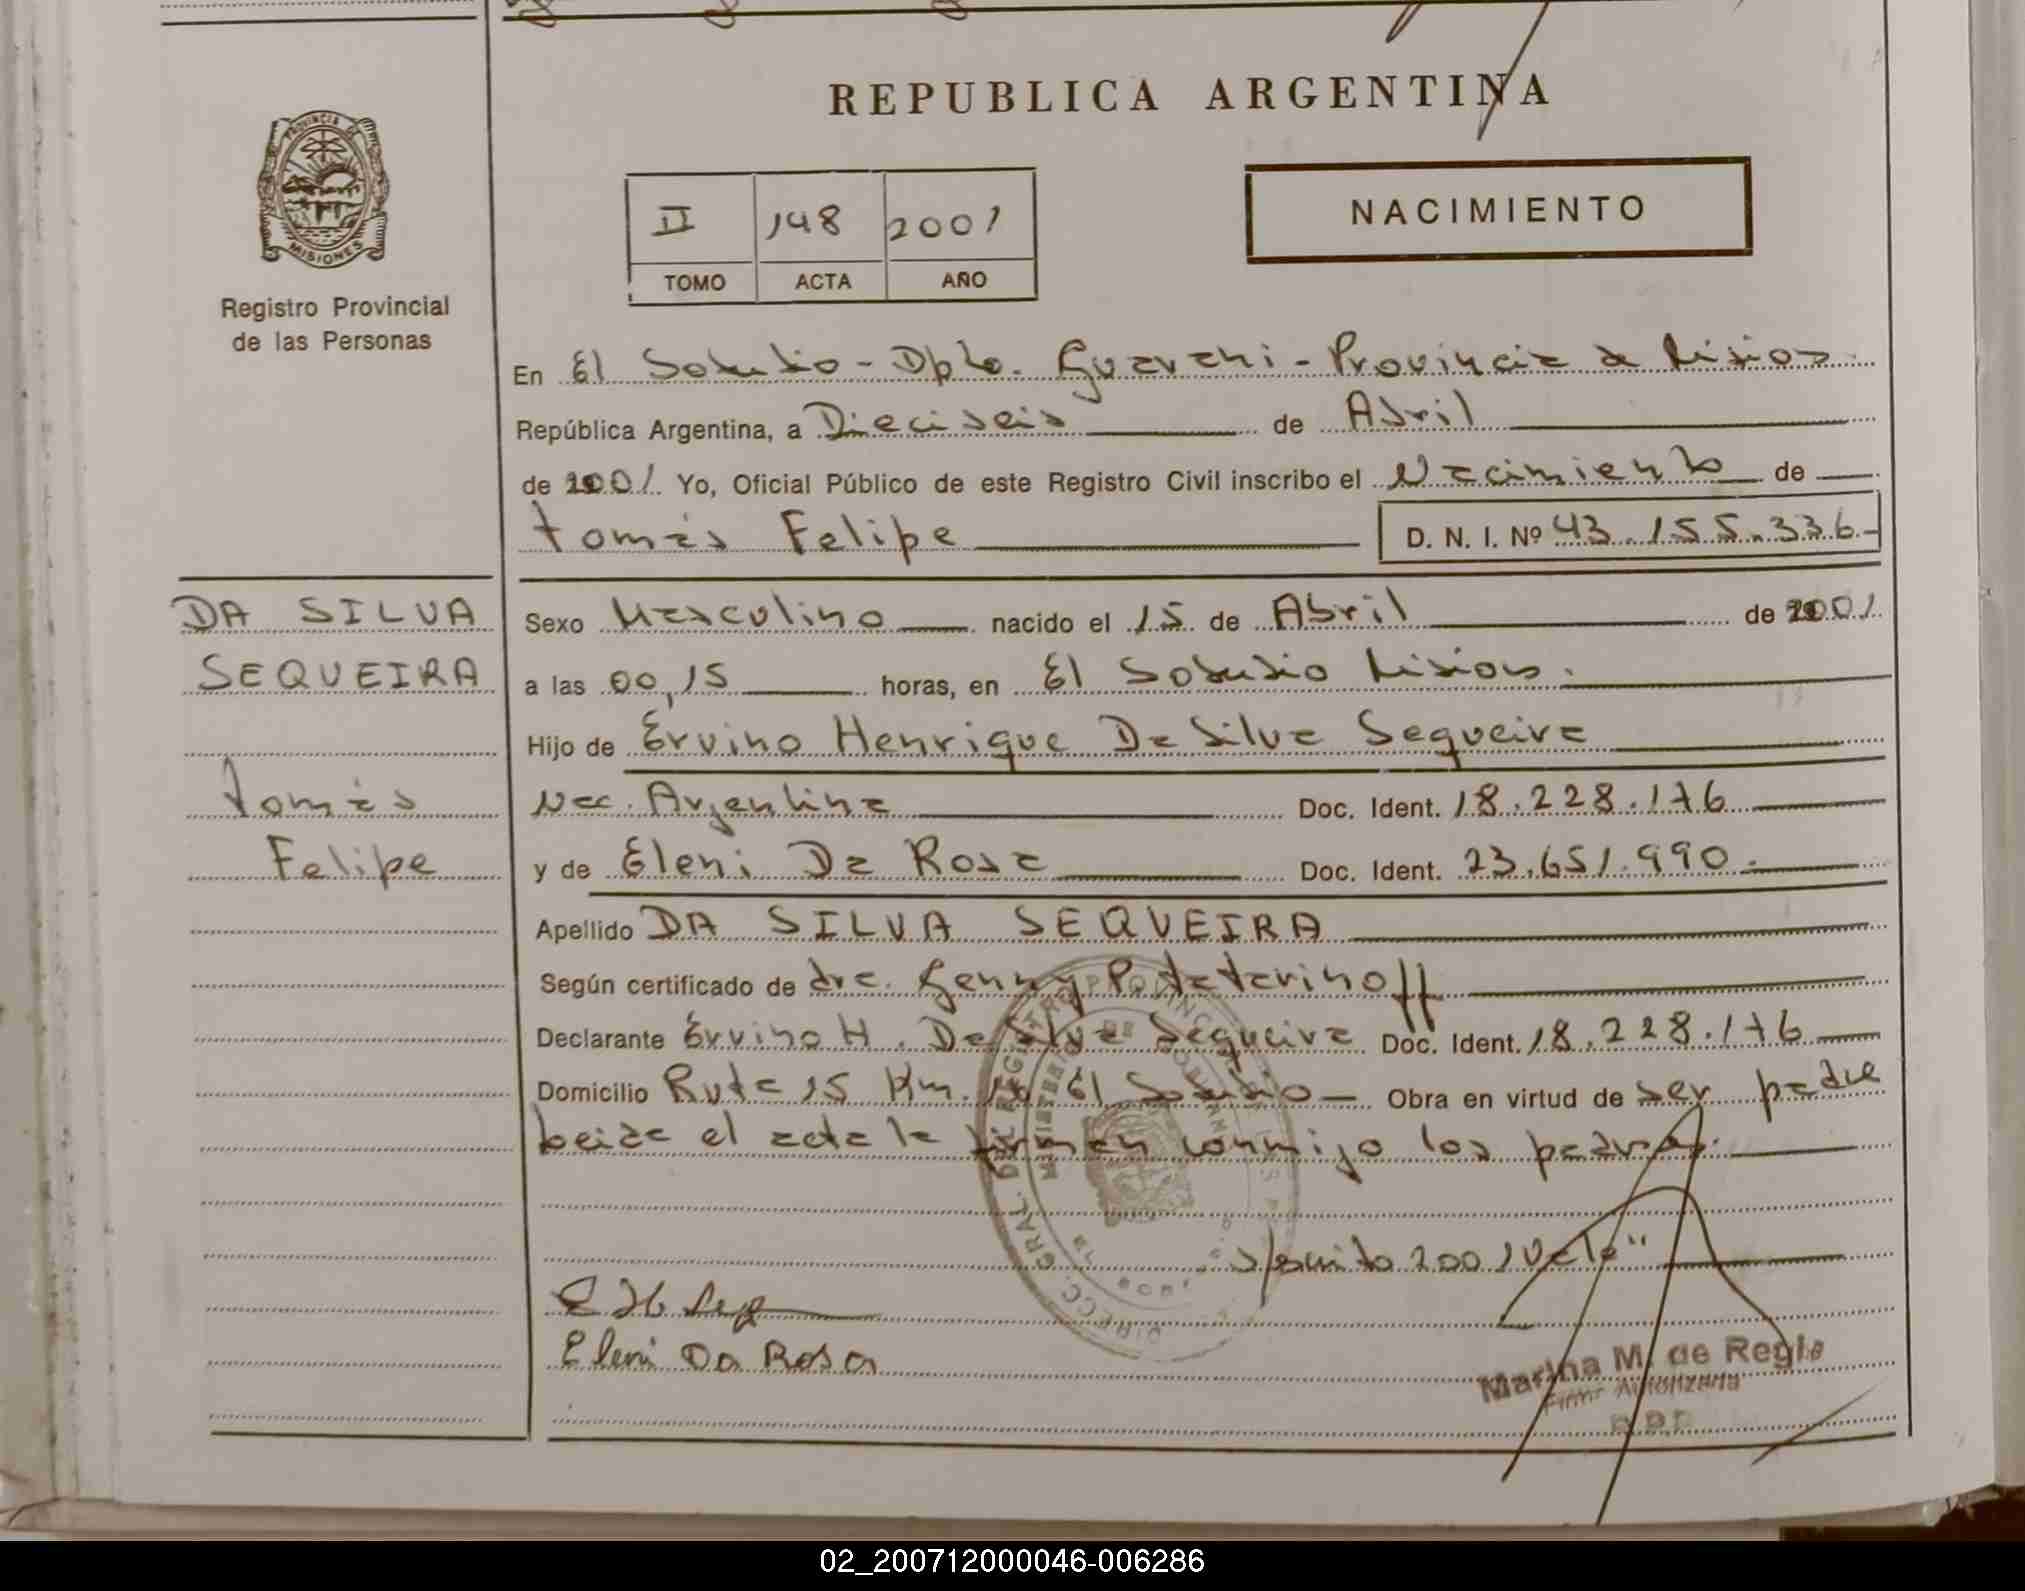 REPUBLICA ARGENTINA
PROVINCIA DE
MISIONES
Registro Provincial
de las Personas
II 148 2001
TOMO ACTA AÑO
NACIMIENTO
En El Soberbio - Dpto. Guarani - Provincia de Misiones
República Argentina, a Dieciseis de Abril
de 2001 Yo, Oficial Público de este Registro Civil inscribo el Nacimiento de
Tomás Felipe D. N. I. Nº 43.155.336-
DA SILVA
SEQUEIRA
Tomás
Felipe
Sexo Masculino nacido el 15 de Abril de 2001
a las 00,15 horas, en El Soberbio Misiones.
Hijo de Ervino Henrique Da Silva Sequeira
Nac. Argentina Doc. Ident. 18.228.176
y de Eleni Da Rosa Doc. Ident. 23.651.990.-
Apellido DA SILVA SEQUEIRA
Según certificado de dra. Genny
Declarante Ervino H. Da Silva Sequeira Doc. Ident. 18.228.176
Domicilio Ruta 15 Km. El Soberbio - Obra en virtud de ser padre
el acta la firman conmigo los padres.
2001 Vale"
Eleni Da Rosa
Marina M. de Regie
Firma Autorizada
02_200712000046-006286